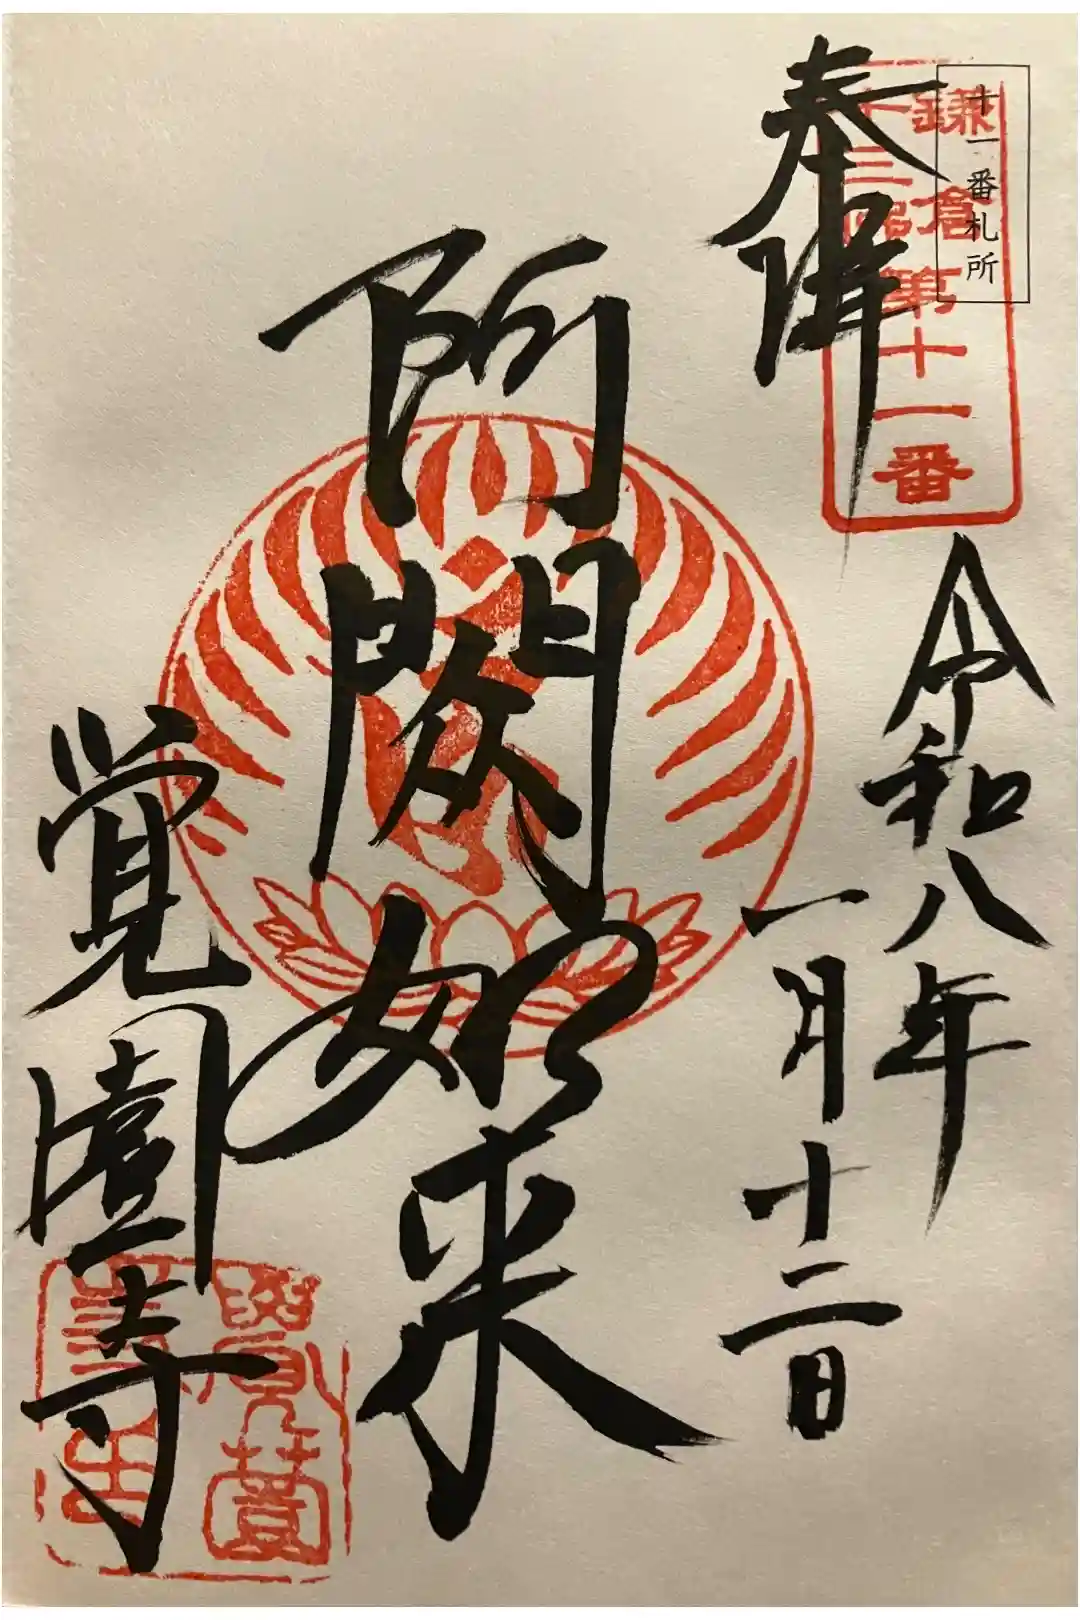 十一番札所
鎌倉第十一番
十三佛
奉拝
令和八年
一月十二日
阿閦如来
覚園寺